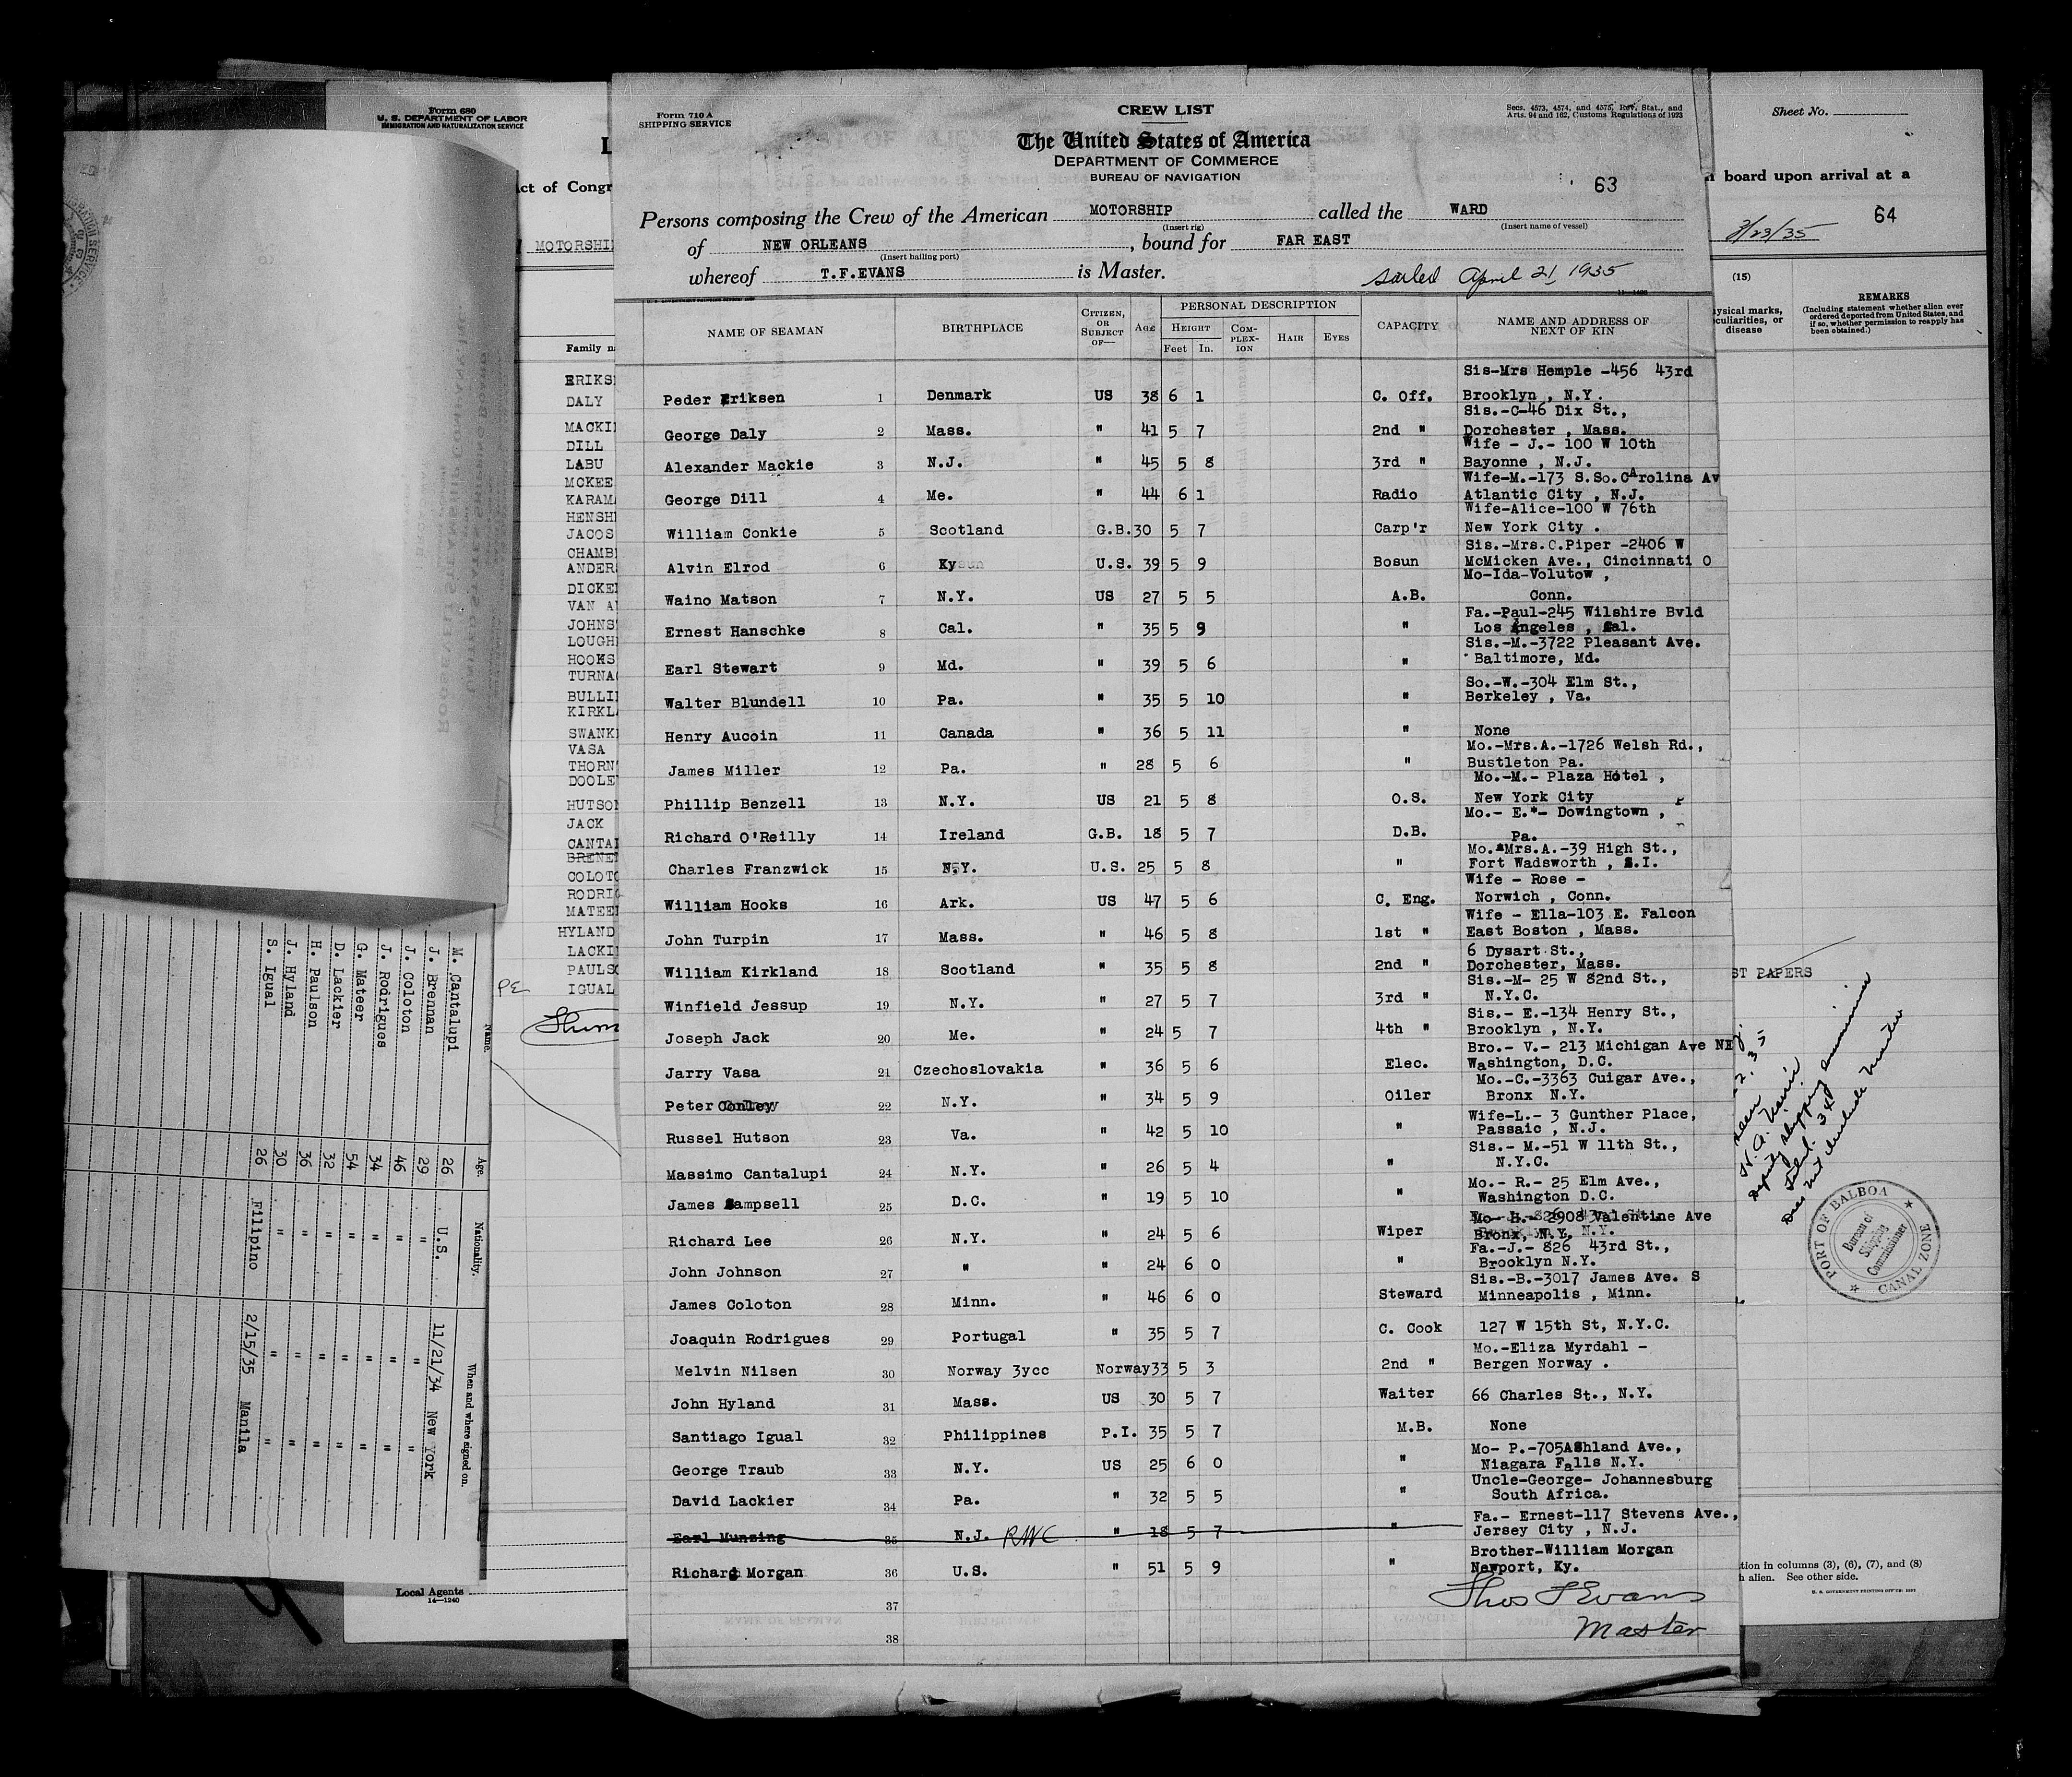 Form 680
U. S. DEPARTMENT OF LABOR
IMMIGRATION AND NATURALIZATION SERVICE
Act of Congr
MOTORSHI
Family n
ERIKS
DALY
MACKI
DILL
LABU
MCKEE
KARAM
HENSH
JACOS
CHAMB
ANDER
DICKE
VAN A
JOHNS
LOUGH
HOOKS
TURNA
BULLI
KIRKL
SWANK
VASA
THORN
DOOLE
HUTSO
JACK
CANTA
BRENE
COLOT
RODRI
MATEE
HYLAND
LACKI
PAULS
IGUAL
Local Agents
14—1240
Form 710 A
SHIPPING SERVICE
CREW LIST
Secs. 4573, 4574, and 4575, Rev. Stat., and
Arts. 94 and 162, Customs Regulations of 1923
The United States of America
DEPARTMENT OF COMMERCE
BUREAU OF NAVIGATION
63
Persons composing the Crew of the American MOTORSHIP called the WARD
(Insert rig) (Insert name of vessel)
of NEW ORLEANS, bound for FAR EAST
(Insert hailing port)
whereof T.F.EVANS is Master. Sailed April 21, 1935
NAME OF SEAMAN BIRTHPLACE CITIZEN, OR SUBJECT OF— Age PERSONAL DESCRIPTION HEIGHT Feet In. COM-PLEX-ION HAIR EYES CAPACITY NAME AND ADDRESS OF NEXT OF KIN
Sis-Mrs Hemple -456 43rd
Peder Eriksen 1 Denmark US 38 6 1 C. Off. Brooklyn , N.Y.
Sis.-C-46 Dix St.,
George Daly 2 Mass. " 41 5 7 2nd " Dorchester , Mass.
Wife - J.- 100 W 10th
Alexander Mackie 3 N.J. " 45 5 8 3rd " Bayonne , N.J.
Wife-M.-173 S.So.CArolina Av
George Dill 4 Me. " 44 6 1 Radio Atlantic City , N.J.
Wife-Alice-100 W 76th
William Conkie 5 Scotland G.B. 30 5 7 Carp'r New York City .
Sis.-Mrs.C.Piper -2406 W
Alvin Elrod 6 Ky U.S. 39 5 9 Bosun McMicken Ave., Cincinnati O
Mo-Ida-Volutow ,
Waino Matson 7 N.Y. US 27 5 5 A.B. Conn.
Fa.-Paul-245 Wilshire Bvld
Ernest Hanschke 8 Cal. " 35 5 9 " Los Angeles , Cal.
Sis.-M.-3722 Pleasant Ave.
Earl Stewart 9 Md. " 39 5 6 " Baltimore, Md.
So.-W.-304 Elm St.,
Walter Blundell 10 Pa. " 35 5 10 " Berkeley , Va.
Henry Aucoin 11 Canada " 36 5 11 " None
Mo.-Mrs.A.-1726 Welsh Rd.,
James Miller 12 Pa. " 28 5 6 " Bustleton Pa.
Mo.-M.- Plaza Hotel ,
Phillip Benzell 13 N.Y. US 21 5 8 O.S. New York City
Mo.- E.*- Dowingtown ,
Richard O'Reilly 14 Ireland G.B. 18 5 7 D.B. Pa.
Mo.*Mrs.A.-39 High St.,
Charles Franzwick 15 N.Y. U.S. 25 5 8 " Fort Wadsworth , S.I.
Wife - Rose -
William Hooks 16 Ark. US 47 5 6 C. Eng. Norwich , Conn.
Wife - Ella-103 E. Falcon
John Turpin 17 Mass. " 46 5 8 1st " East Boston , Mass.
6 Dysart St.,
William Kirkland 18 Scotland " 35 5 8 2nd " Dorchester, Mass.
Sis.-M- 25 W 82nd St.,
Winfield Jessup 19 N.Y. " 27 5 7 3rd " N.Y.C.
Sis.- E.-134 Henry St.,
Joseph Jack 20 Me. " 24 5 7 4th " Brooklyn , N.Y.
Bro.- V.- 213 Michigan Ave NE
Jarry Vasa 21 Czechoslovakia " 36 5 6 Elec. Washington, D.C.
Mo.-C.-3363 Cuigar Ave.,
Peter Conley 22 N.Y. " 34 5 9 Oiler Bronx N.Y.
Wife-L.- 3 Gunther Place,
Russel Hutson 23 Va. " 42 5 10 " Passaic , N.J.
Sis.- M.-51 W 11th St.,
Massimo Cantalupi 24 N.Y. " 26 5 4 " N.Y.C.
Mo.- R.- 25 Elm Ave.,
James Sampsell 25 D.C. " 19 5 10 " Washington D.C.
Mo- H.- 2908 Valentine Ave
Richard Lee 26 N.Y. " 24 5 6 Wiper Bronx, N.Y.
Fa.-J.- 826 43rd St.,
John Johnson 27 " " 24 6 0 " Brooklyn N.Y.
Sis.-B.-3017 James Ave. S
James Coloton 28 Minn. " 46 6 0 Steward Minneapolis , Minn.
Joaquin Rodrigues 29 Portugal " 35 5 7 C. Cook 127 W 15th St, N.Y.C.
Mo.-Eliza Myrdahl -
Melvin Nilsen 30 Norway 3ycc Norway 33 5 3 2nd " Bergen Norway .
John Hyland 31 Mass. US 30 5 7 Waiter 66 Charles St., N.Y.
Santiago Igual 32 Philippines P.I. 35 5 7 M.B. None
Mo- P.-705AShland Ave.,
George Traub 33 N.Y. US 25 6 0 " Niagara Falls N.Y.
Uncle-George- Johannesburg
David Lackier 34 Pa. " 32 5 5 " South Africa.
Fa.- Ernest-117 Stevens Ave.,
Earl Munzing 35 N.J. RWC " 18 5 7 " Jersey City , N.J.
Brother-William Morgan
Richard Morgan 36 U.S. " 51 5 9 " Newport, Ky.
37
38
Thos F Evans
Master
Sheet No.
n board upon arrival at a
3/23/35
64
(15)
ysical marks,
culiarities, or
disease
REMARKS
(Including statement whether alien ever
ordered deported from United States, and
if so, whether permission to reapply has
been obtained.)
ST PAPERS
Deputy shipping commissioner
PORT OF BALBOA
CANAL ZONE
Bureau of
Shipping
Commissioner
tion in columns (3), (6), (7), and (8)
h alien. See other side.
Name. Age. Nationality. When and where signed on.
M. Cantalupi 26 U.S. 11/21/34 New York
J. Brennan 29 " " "
J. Coloton 46 " " "
J. Rodrigues 34 " " "
G. Mateer 54 " " "
D. Lackier 32 " " "
H. Paulson 36 " " "
J. Hyland 30 " " "
S. Igual 26 Filipino 2/15/35 Manila